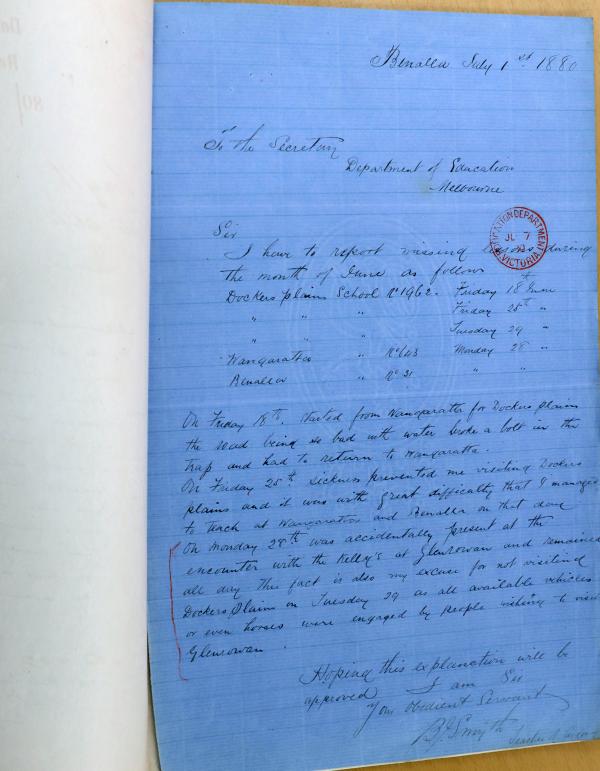 Benalla July 1st 1880
To the Secretary
Department of Education
Melbourne
EDUCATION DEPARTMENT
JL 7
VICTORIA
Sir
I have to report missing lessons during
the month of June as follows
Dockers plains School No 1962. Friday 18th June
" " " Friday 25th "
" " " Tuesday 29 "
Wangaratta " No 643 Monday 28 "
Benalla " No 31 " "
On Friday 18th. started from Wangaratta for Dockers plains
the road being so bad with water broke a bolt in the
trap and had to return to Wangaratta.
On Friday 25th sickness prevented me visiting Dockers
plains and it was with great difficulty that I managed
to teach at Wangaratta and Benalla on that day
On Monday 28th was accidentally present at the
encounter with the Kelly's at Glenrowan and remained
all day this fact is also my excuse for not visiting
Dockers Plains on Tuesday 29 as all available vehicles
or even horses were engaged by people wishing to visit
Glenrowan.
Hoping this explanation will be
approved I am Sir
Your Obedient Servant
Smyth
Teacher of